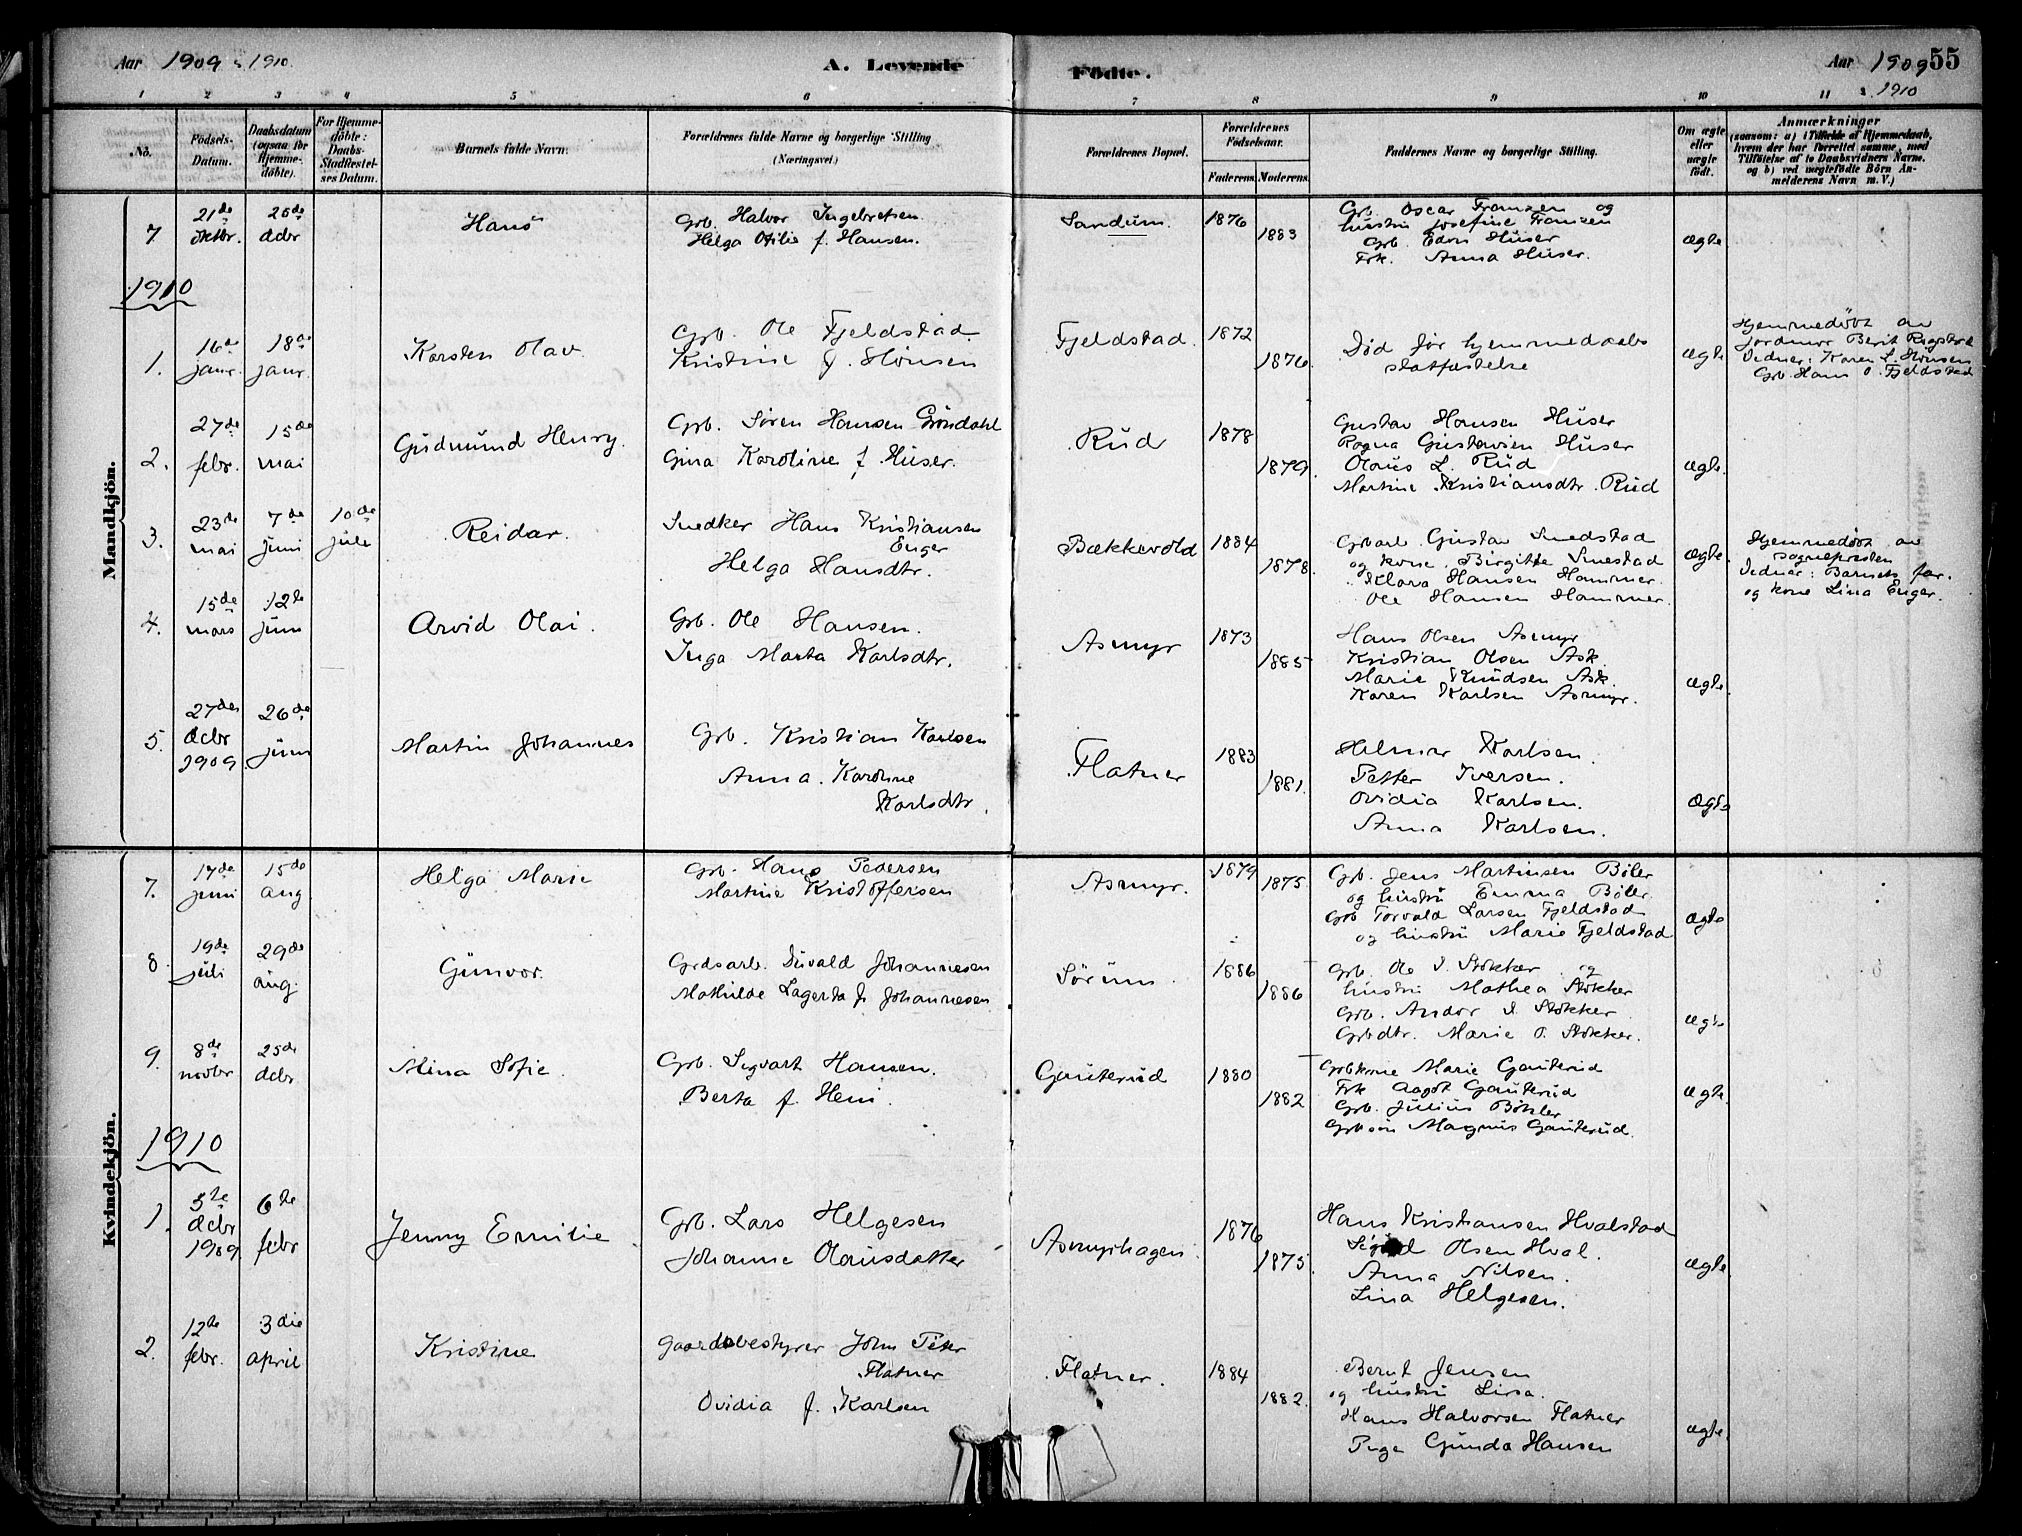 Aar 1909 & 1910.
A. Levende Födte.
Aar 1909 & 1910
55
1 2 3 4 5 6 7 8 9 10 11
No.
Födsels-Datum.
Daabsdatum (ogsaa for Hjemme-döbte).
For Hjemme-döbte: Daabs-Stadfæstel-ses Datum.
Barnets fulde Navn.
Forældrenes fulde Navne og borgerlige Stilling (Næringsvei.)
Forældrenes Bopæl.
Forældrenes Födselsaar.
Faderens. Moderens.
Faddernes Navne og borgerlige Stilling.
Om ægte eller uægte födt.
Anmærkninger
(saasom: a) i Tilfælde af Hjemmedaab, hvem der har forrettet samme, med Tilföielse af to Daabsvidners Navne. og b) ved uægtefödte Börn Anmelderens Navn m. V.)
Mandkjön.
7. 21de oktbr. 26de dcbr Hans
Grb. Halvor Ingebretsen
Helga Otilie f. Hansen.
Sandum. 1876 1883
Grb. Oscar Franzen og
hustru Josefine Franzen
Grb. Edvn Huser
Frk. Anna Huser.
ægte
1910
1. 16de janr. 18de janr. Karsten Olav.
Grb. Ole Fjeldstad
Kristine f. Hönsen
Fjeldstad. 1872 1876.
Död för hjemmedaabs
statfæstelse
ægte
Hjemmedöbt av
jordmor Berit Rugstad
Vidner: Karen L. Hönsen
Grb. Hans O. Fjeldstad
2. 27de febr. 15de mai Gudmund Henry.
Grb. Sören Hansen Gröndahl
Gina Karoline f. Huser.
Rud 1878 1879.
Gustav Hansen Huser
Ragna Gustavsen Huser
Olaus L. Rud
Martine Kristiansdtr. Rud
ægte.
3. 23de mai 7de juni 10de juli Reidar.
Snedker Hans Kristiansen
Enger
Helga Hansdtr.
Bækkevold 1884 1878.
Grbarb. Gustav Snestad
og kone Birgitte Snestad
Klara Hansen Hammer.
Ole Hansen Hammer.
ægte.
Hjemmedöbt av
sognepresten
Vidner: Barnets far.
og kone Lina Enger.
4. 15de mars 12te juni Arvid Olai.
Grb. Ole Hansen.
Inga Marta Karlsdtr.
Asmyr 1873 1885
Hans Olsen Asmyr
Kristian Olsen Ask.
Marie Knudsen Ask.
Karen Karlsen Asmyr.
ægte
5. 27des dcbr 1909. 26de juni Martin Johannes
Grb. Kristian Karlsen
Anna Karoline
Karlsdtr.
Flatner 1883 1881.
Helmer Karlsen.
Petter Iversen.
Ovidia Karlsen.
Anna Karlsen.
ægte
Kvindekjön.
7. 17de juni 15de aug Helga Marie
Grb. Hans Pedersen
Martine Kristoffersen
Asmyr. 1879 1875
Grb. Jens Martinsen Böler
og hustru Emma Böler.
Grb Torvald Larsen Fjeldstad
og hustru Marie Fjeldstad
ægte
8. 19de juli 29de aug. Gunvor.
Grdsarb. Duvald Johannesen
Mathilde Lagerta f. Johannesen
Sörum. 1886 1886
Grb. Ole I. Stokker og
hustru Mathea Stokker
Grb. Andor I Stokker.
Grbdtr. Marie O. Stokker.
ægte
9. 8de novbr 25de dcbr Alina Sofie.
Grb. Sigvart Hansen.
Berta f. Heni.
Gauterud 1880 1882
Grbkone Marie Gauterud
Frk Aagot Gauterud
Grb. Julius Böhler
Grbsön Magnus Gauterud.
ægte.
1910
1. 5te dcbr 1909. 6te febr Jenny Emilie
Grb. Lars Helgesen
Johanne Olausdatter
Asmyrhagen 1876 1875.
Hans Kristiansen Hvalstad
Olsen Hval.
Anna Nilsen.
Lina Helgesen.
ægte.
2. 12te febr. 3die april Kristine
Gaardsbestyrer John Peter
Flatner
Ovidia f. Karlsen
Flatner. 1884 1882.
Bernt Jensen
og hustru Lina.
Hans Halvorsen Flatner
Inga Gunda Hansen
ægte.